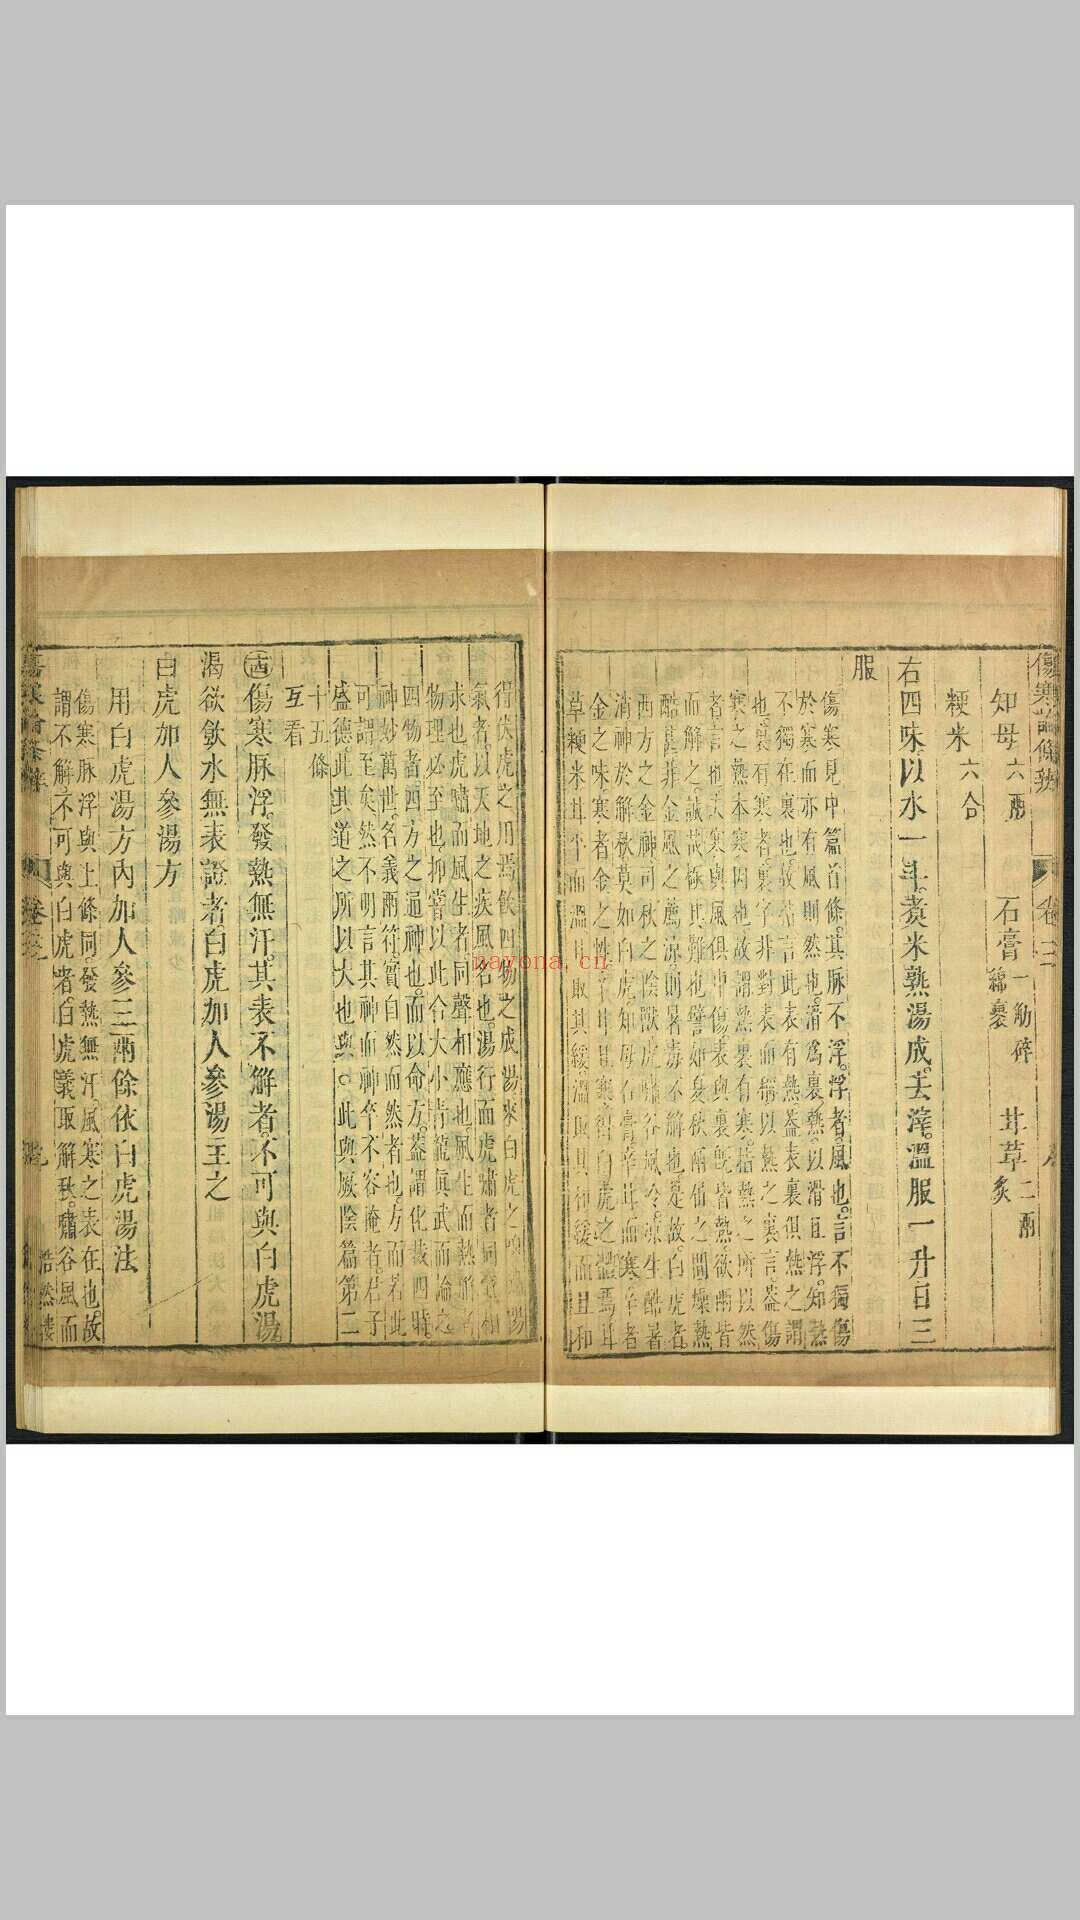 傷寒論條辨 卷三
知母六兩 石膏一觔碎綿裹 甘草二兩炙
粳米六合
右四味以水一斗煑米熟湯成去滓溫服一升日三
服
傷寒見中篇首條其脉不浮浮者風也言不獨傷
於寒而亦有風則然也滑爲裏熱以滑且浮知熱
不獨在裏也故指言此表有熱蓋表裏俱熱之謂
也裏有寒者裏字非對表而稱以熱之裏言蓋傷
寒之熱本寒因也故謂熱裏有寒指熱之所以然
者言也夫寒與風俱中傷表與裏旣皆熱欲兩皆
而解之誠哉極其難也譬如夏秋兩屆之間燠熱
酷甚非金風之薦涼則暑毒不解也是故白虎者
西方之金神司秋之陰獸虎嘯谷風冷凉生酷暑
消神於解秋莫如白虎知母石膏辛甘而寒辛者
金之味寒者金之性辛甘且寒得白虎之體焉甘
草粳米甘平而溫且取其緩溫取其和緩而且和
得伏虎之用焉飲四物之成湯來白虎之嘷 湯
氣者以天地之疾風名也湯行而虎嘯者同氣相
求也虎嘯而風生者同聲相應也風生而熱解者
物理必至也抑嘗以此合大小靑龍眞武而論之
四物者四方之通神也而以命方蓋謂化裁四時
神妙萬世名義兩符實自然而然者也方而若此
可謂至矣然不明言其神而神卒不容掩者君子
盛德此其道之所以大也與此與厥陰篇第二
十五條
互看
傷寒脉浮發熱無汗其表不解者不可與白虎湯
渴欲飲水無表證者白虎加人參湯主之
白虎加人參湯方
用白虎湯方內加人參三兩餘依白虎湯法
傷寒脉浮與上條同發熱無汗風寒之表在也故
謂不解不可與白虎者白虎義取解秋嘯谷風而
傷寒論條辨 卷三 浩然樓
nayona.cn